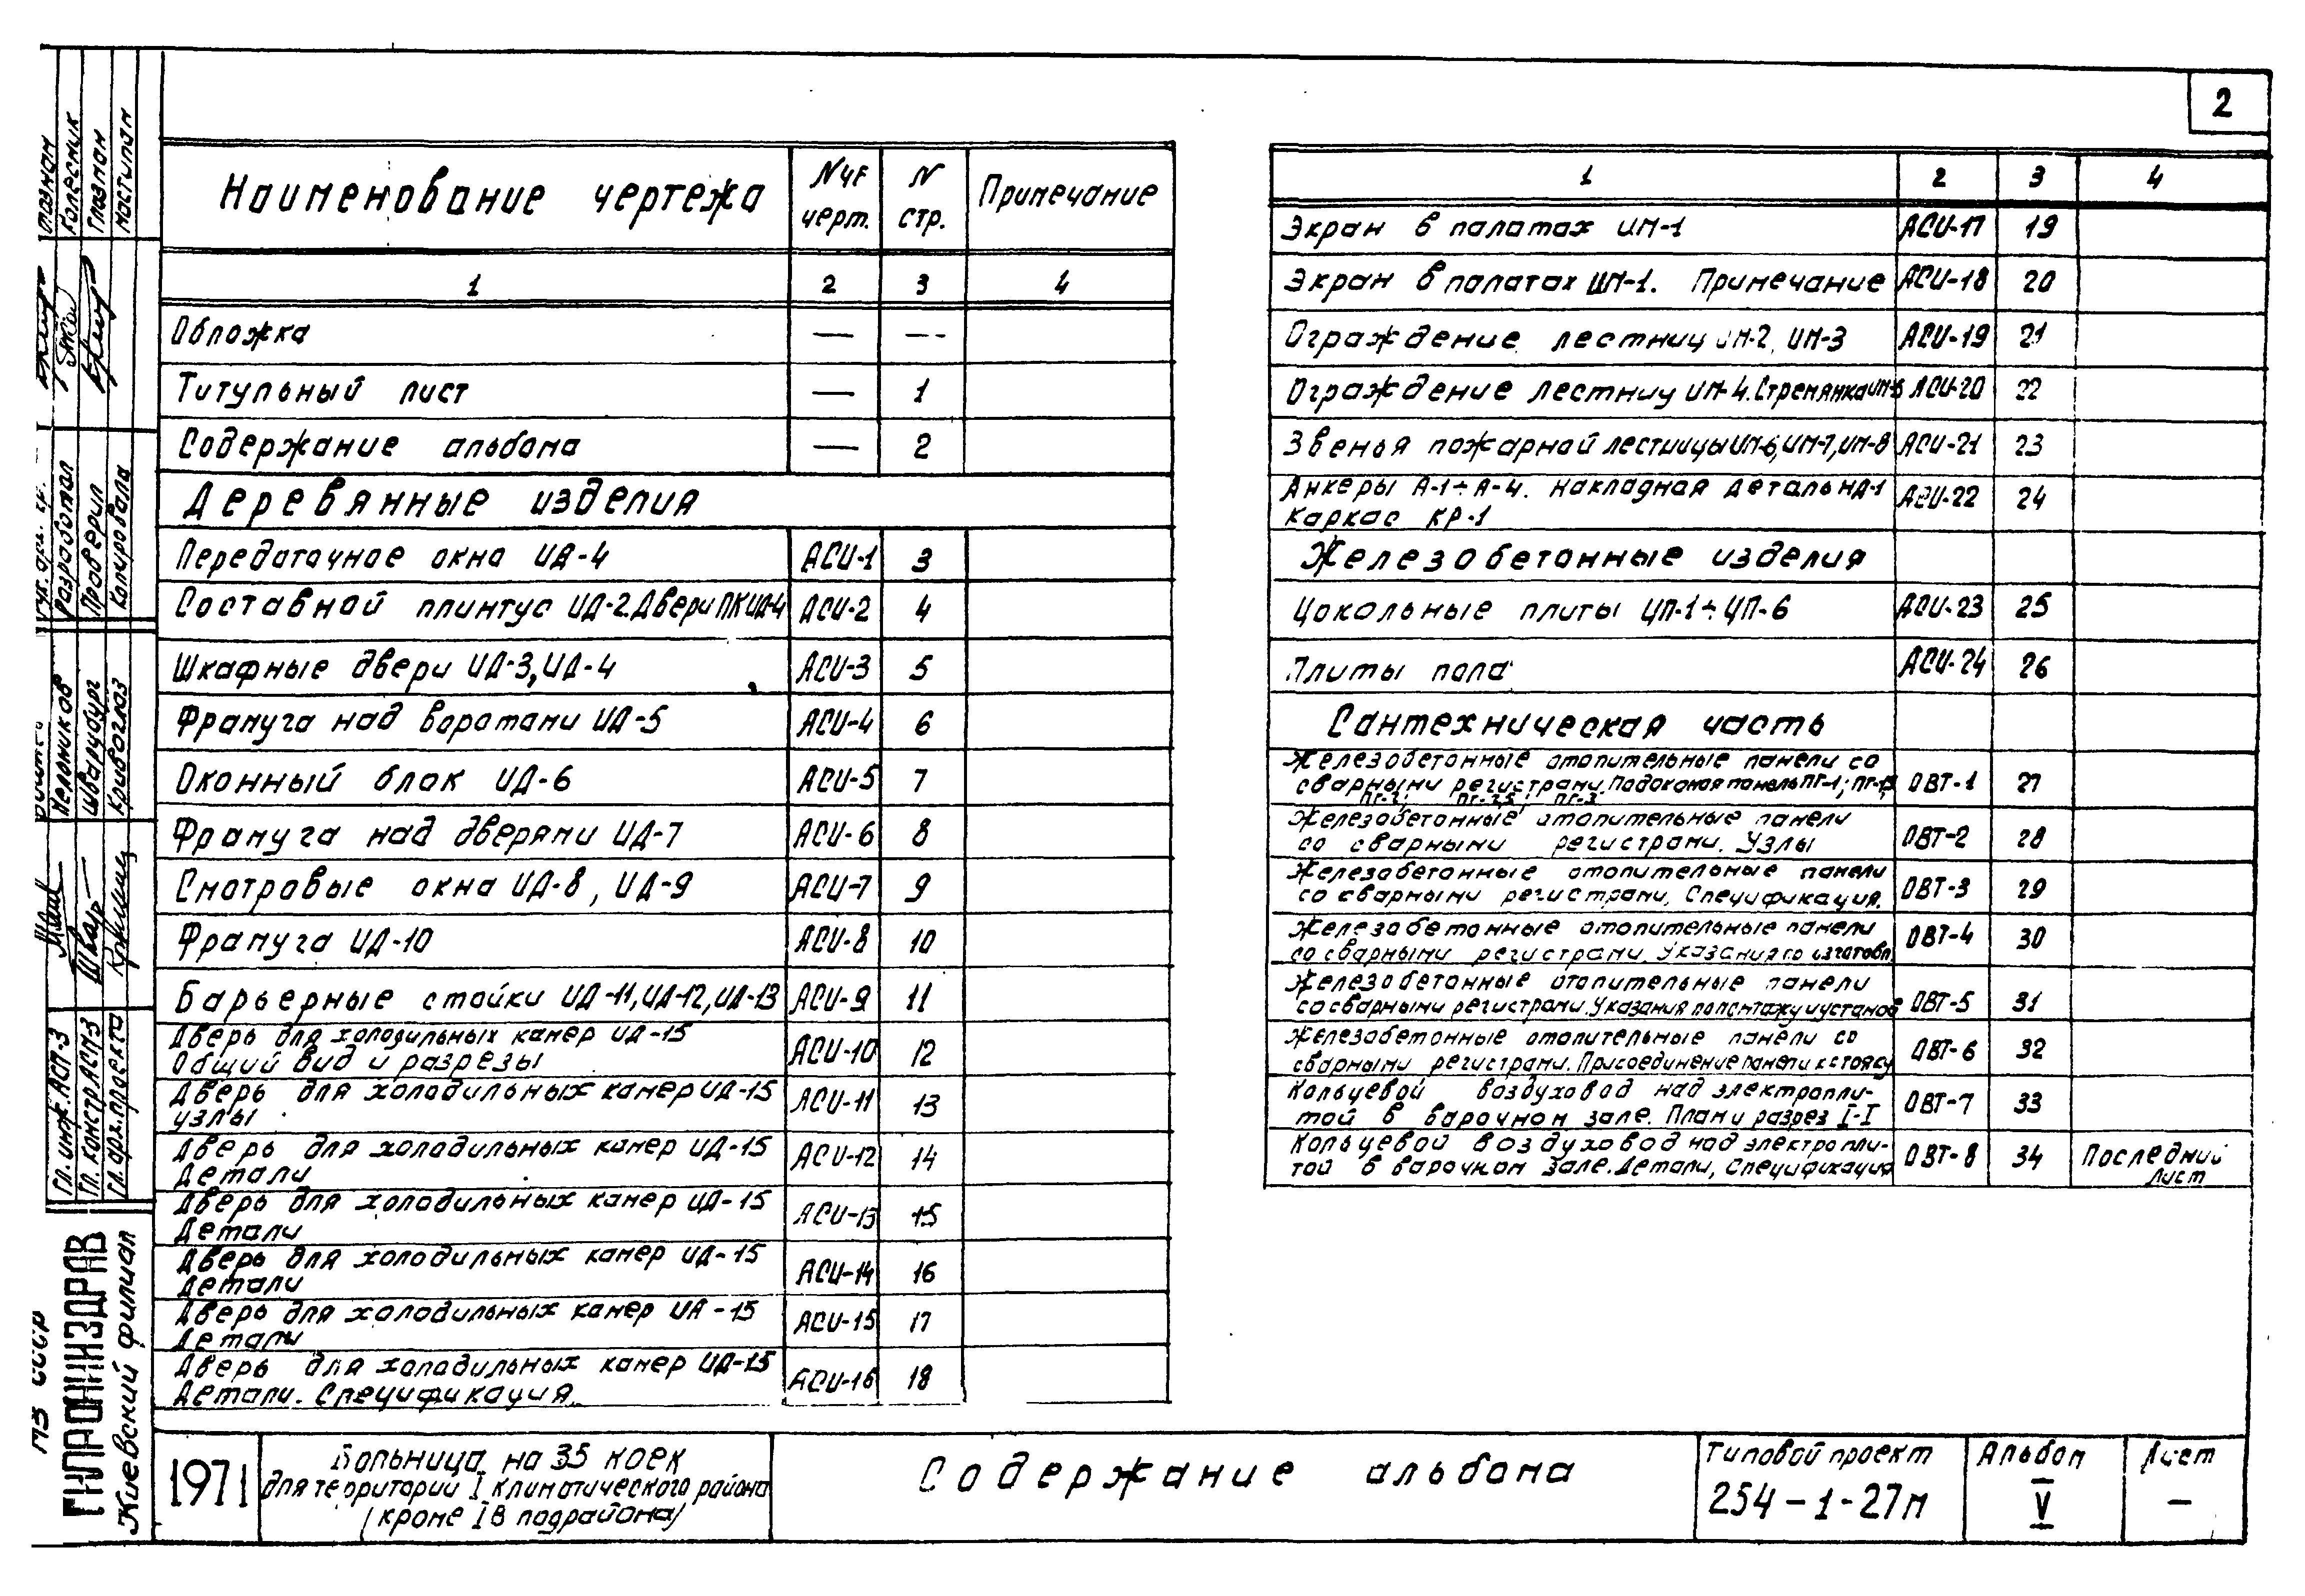 2
Наименование чертежа
N
черт.
N
стр.
Примечание
1 2 3 4
Обложка — —
Титульный лист — 1
Содержание альбома — 2
Деревянные изделия
Передаточное окна ИД-4 АСИ-1 3
Составной плинтус ИД-2. Двери ПК ИД-4 АСИ-2 4
Шкафные двери ИД-3, ИД-4 АСИ-3 5
Фрамуга над воротами ИД-5 АСИ-4 6
Оконный блок ИД-6 АСИ-5 7
Фрамуга над дверями ИД-7 АСИ-6 8
Смотровые окна ИД-8, ИД-9 АСИ-7 9
Фрамуга ИД-10 АСИ-8 10
Барьерные стойки ИД-11, ИД-12, ИД-13 АСИ-9 11
Дверь для холодильных камер ИД-15
Общий вид и разрезы АСИ-10 12
Дверь для холодильных камер ИД-15
узлы АСИ-11 13
Дверь для холодильных камер ИД-15
Детали АСИ-12 14
Дверь для холодильных камер ИД-15
Детали АСИ-13 15
Дверь для холодильных камер ИД-15
Детали АСИ-14 16
Дверь для холодильных камер ИД-15
Детали АСИ-15 17
Дверь для холодильных камер ИД-15
Детали. Спецификация. АСИ-16 18
1 2 3 4
Экран в палатах ИМ-1 АСИ-17 19
Экран в палатах ИМ-1. Примечание АСИ-18 20
Ограждение лестниц ИМ-2, ИМ-3 АСИ-19 21
Ограждение лестниц ИМ-4. Стремянка ИМ-5 АСИ-20 22
Звенья пожарной лестницы ИМ-6, ИМ-7, ИМ-8 АСИ-21 23
Анкеры А-1÷А-4. Накладная деталь НД-1
Каркас КР-1 АСИ-22 24
Железобетонные изделия
Цокольные плиты ЦП-1÷ЦП-6 АСИ-23 25
Плиты пола АСИ-24 26
Сантехническая часть
Железобетонные отопительные панели со
сварными регистрами. Подоконная панель ПГ-1; ПГ-1,5 ОВТ-1 27
ПГ-2; ПГ-2,5; ПГ-3
Железобетонные отопительные панели
со сварными регистрами. Узлы ОВТ-2 28
Железобетонные отопительные панели
со сварными регистрами. Спецификация. ОВТ-3 29
Железобетонные отопительные панели
со сварными регистрами. Указания по изготовл. ОВТ-4 30
Железобетонные отопительные панели
со сварными регистрами. Указания по монтажу и установ ОВТ-5 31
Железобетонные отопительные панели со
сварными регистрами. Присоединение панели к стояку ОВТ-6 32
Кольцевой воздуховод над электропли-
той в варочном зале. План и разрез I-I ОВТ-7 33
Кольцевой воздуховод над электропли-
той в варочном зале. Детали, Спецификация ОВТ-8 34 Последний
лист
1971
Больница на 35 коек
для территории I климатического района
/кроме IВ подрайона/
Содержание альбома
Типовой проект
254-1-27м
Альбом
V
Лист
—
МЗ СССР
ГИПРОНИИЗДРАВ
Киевский филиал
Гл. инж. АСП-3
Гл. констр. АСП-3
Гл. арх. проекта
Меломиков
Шварцбург
Кривоглаз
Рук. арх. гр.
Разработал
Проверил
Копировала
Глазман
Болесник
Глазман